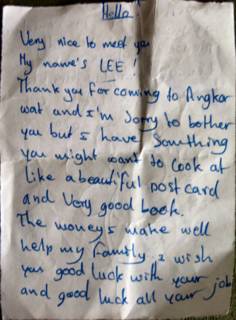 Hello
Very nice to meet you
My name's LEE!
Thank you for coming to Angkor
wat and I'm Sorry to bother
you but I have Something
you might want to look at
like a beautiful post card
and Very good book.
The moneys make well
help my Family, I wish
you good luck with your
and good luck all your job